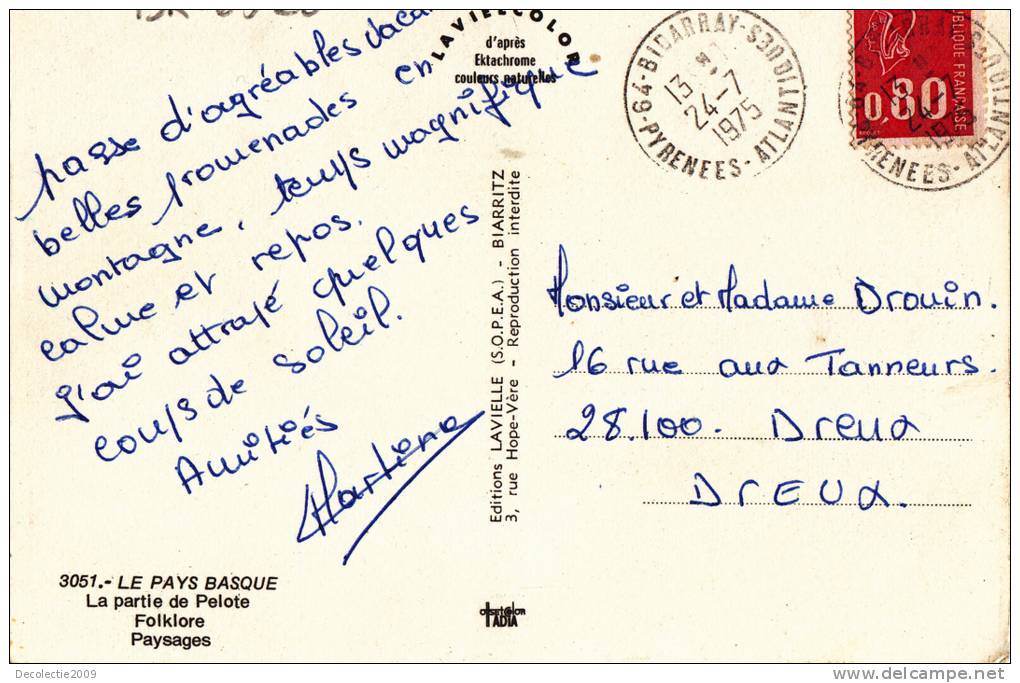 passe d'agréables vaca
belles promenades en
montagne, temps magnifique
calme et repos.
J'ai attrapé quelques
coups de soleil.
Amitiés
Martine
3051.- LE PAYS BASQUE
La partie de Pelote
Folklore
Paysages
LAVIELLECOLOR
d'après
Ektachrome
couleurs naturelles
Editions LAVIELLE (S.O.P.E.A.) - BIARRITZ
3, rue Hope-Vère - Reproduction interdite
TADIA
64-BIDARRAY-
PYRENEES-ATLANTIQUES
13 H
24-7
1975
0,80
REPUBLIQUE FRANÇAISE
PYRENEES-ATLANTIQUES
24-7
1975
Monsieur et Madame Drouin.
16 rue aux Tanneurs.
28.100. Dreux
DREUX.
Decolectie2009
delcampe.net